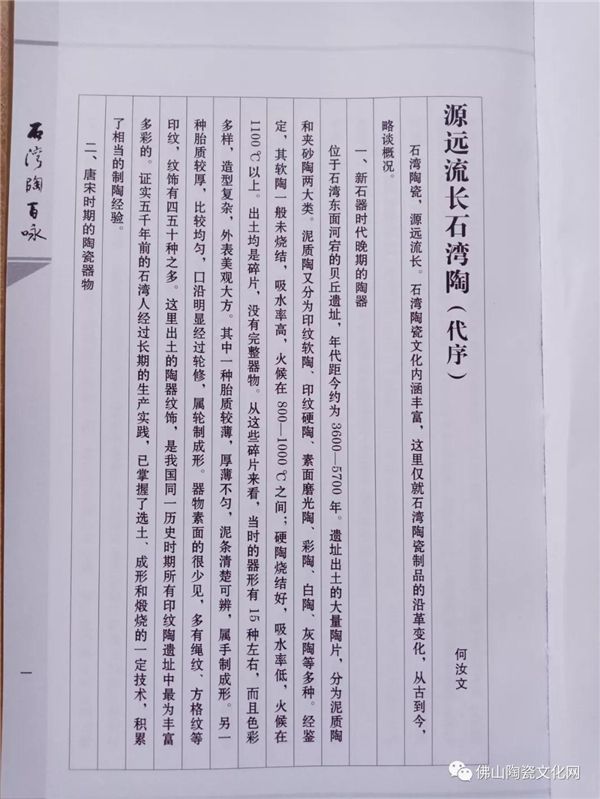 石湾陶百咏
源远流长石湾陶（代序）
何汝文
石湾陶瓷，源远流长。石湾陶瓷文化内涵丰富，这里仅就石湾陶瓷制品的沿革变化，从古到今，
略谈概况。
一、新石器时代晚期的陶器
位于石湾东面河宕的贝丘遗址，年代距今约为 3600—5700 年。遗址出土的大量陶片，分为泥质陶
和夹砂陶两大类。泥质陶又分为印纹软陶、印纹硬陶、素面磨光陶、彩陶、白陶、灰陶等多种。经鉴
定，其软陶一般未烧结，吸水率高，火候在 800—1000℃之间；硬陶烧结好，吸水率低，火候在
1100℃以上。出土均是碎片，没有完整器物。从这些碎片来看，当时的器形有 15 种左右，而且色彩
多样，造型复杂，外表美观大方。其中一种胎质较薄，厚薄不匀，泥条清楚可辨，属手制成形。另一
种胎质较厚，比较均匀，口沿明显经过轮修，属轮制成形。器物素面的很少见，多有绳纹、方格纹等
印纹，纹饰有四五十种之多。这里出土的陶器纹饰，是我国同一历史时期所有印纹陶遗址中最为丰富
多彩的。证实五千年前的石湾人经过长期的生产实践，已掌握了选土、成形和煅烧的一定技术，积累
了相当的制陶经验。
二、唐宋时期的陶瓷器物
一
佛山陶瓷文化网